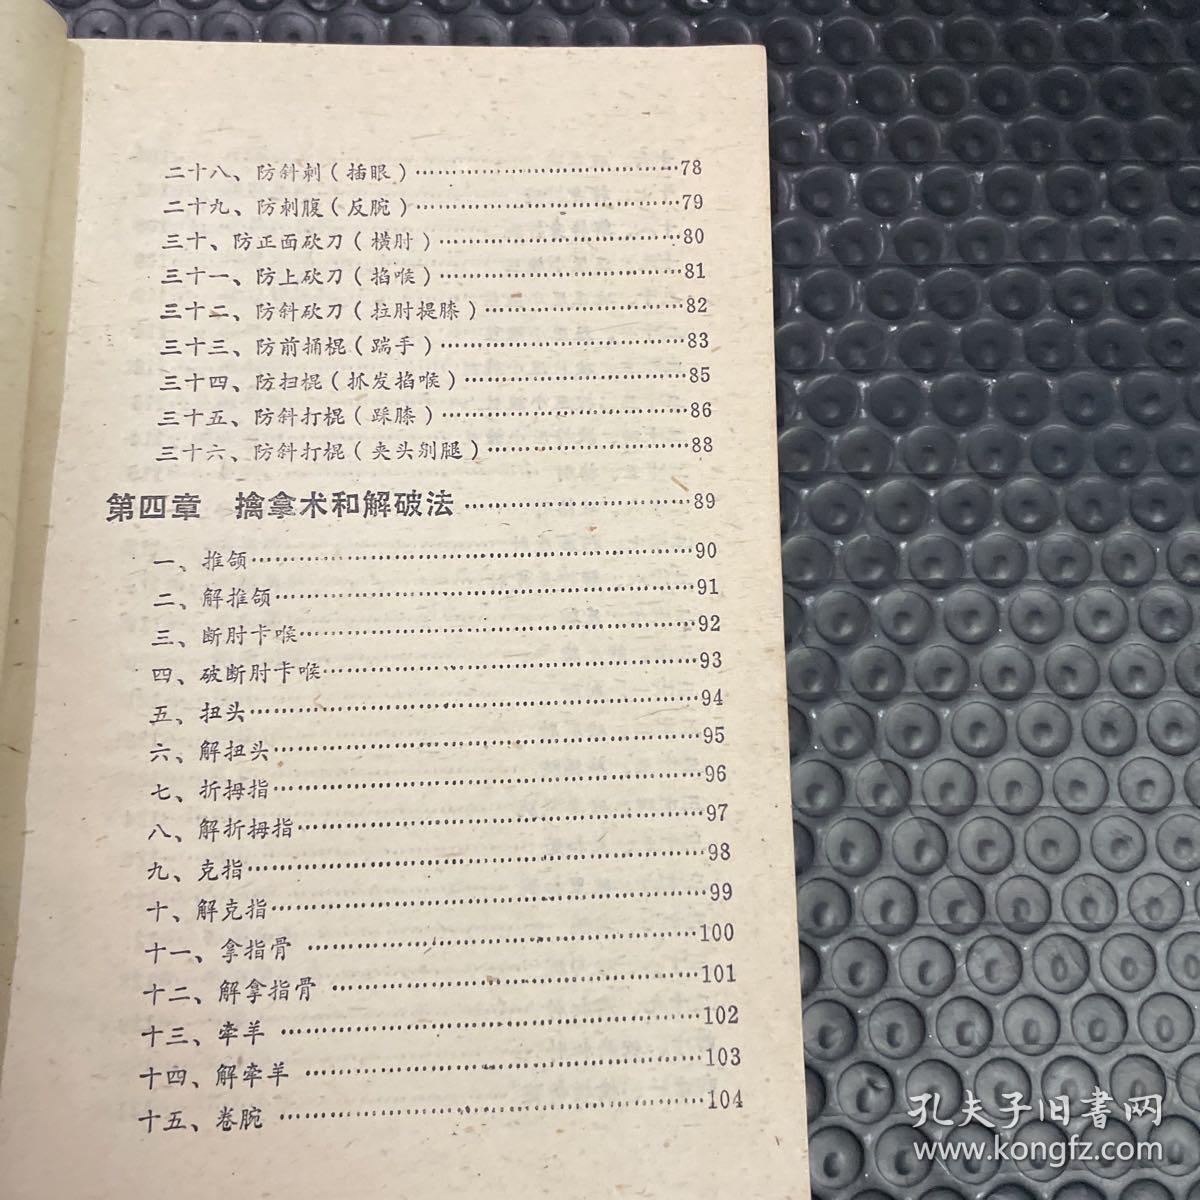 二十八、防斜刺（插眼）……………………………78
二十九、防刺腹（反腕）……………………………79
三十、防正面砍刀（横肘）…………………………80
三十一、防上砍刀（掐喉）…………………………81
三十二、防斜砍刀（拉肘提膝）……………………82
三十三、防前捅棍（踹手）…………………………83
三十四、防扫棍（抓发掐喉）………………………85
三十五、防斜打棍（踩膝）…………………………86
三十六、防斜打棍（夹头剜腿）……………………88
第四章　擒拿术和解破法……………………………89
一、推颌………………………………………………90
二、解推颌……………………………………………91
三、断肘卡喉…………………………………………92
四、破断肘卡喉………………………………………93
五、扭头………………………………………………94
六、解扭头……………………………………………95
七、折拇指……………………………………………96
八、解折拇指…………………………………………97
九、克指………………………………………………98
十、解克指……………………………………………99
十一、拿指骨…………………………………………100
十二、解拿指骨………………………………………101
十三、牵羊……………………………………………102
十四、解牵羊…………………………………………103
十五、卷腕……………………………………………104
孔夫子旧书网
www.kongfz.com